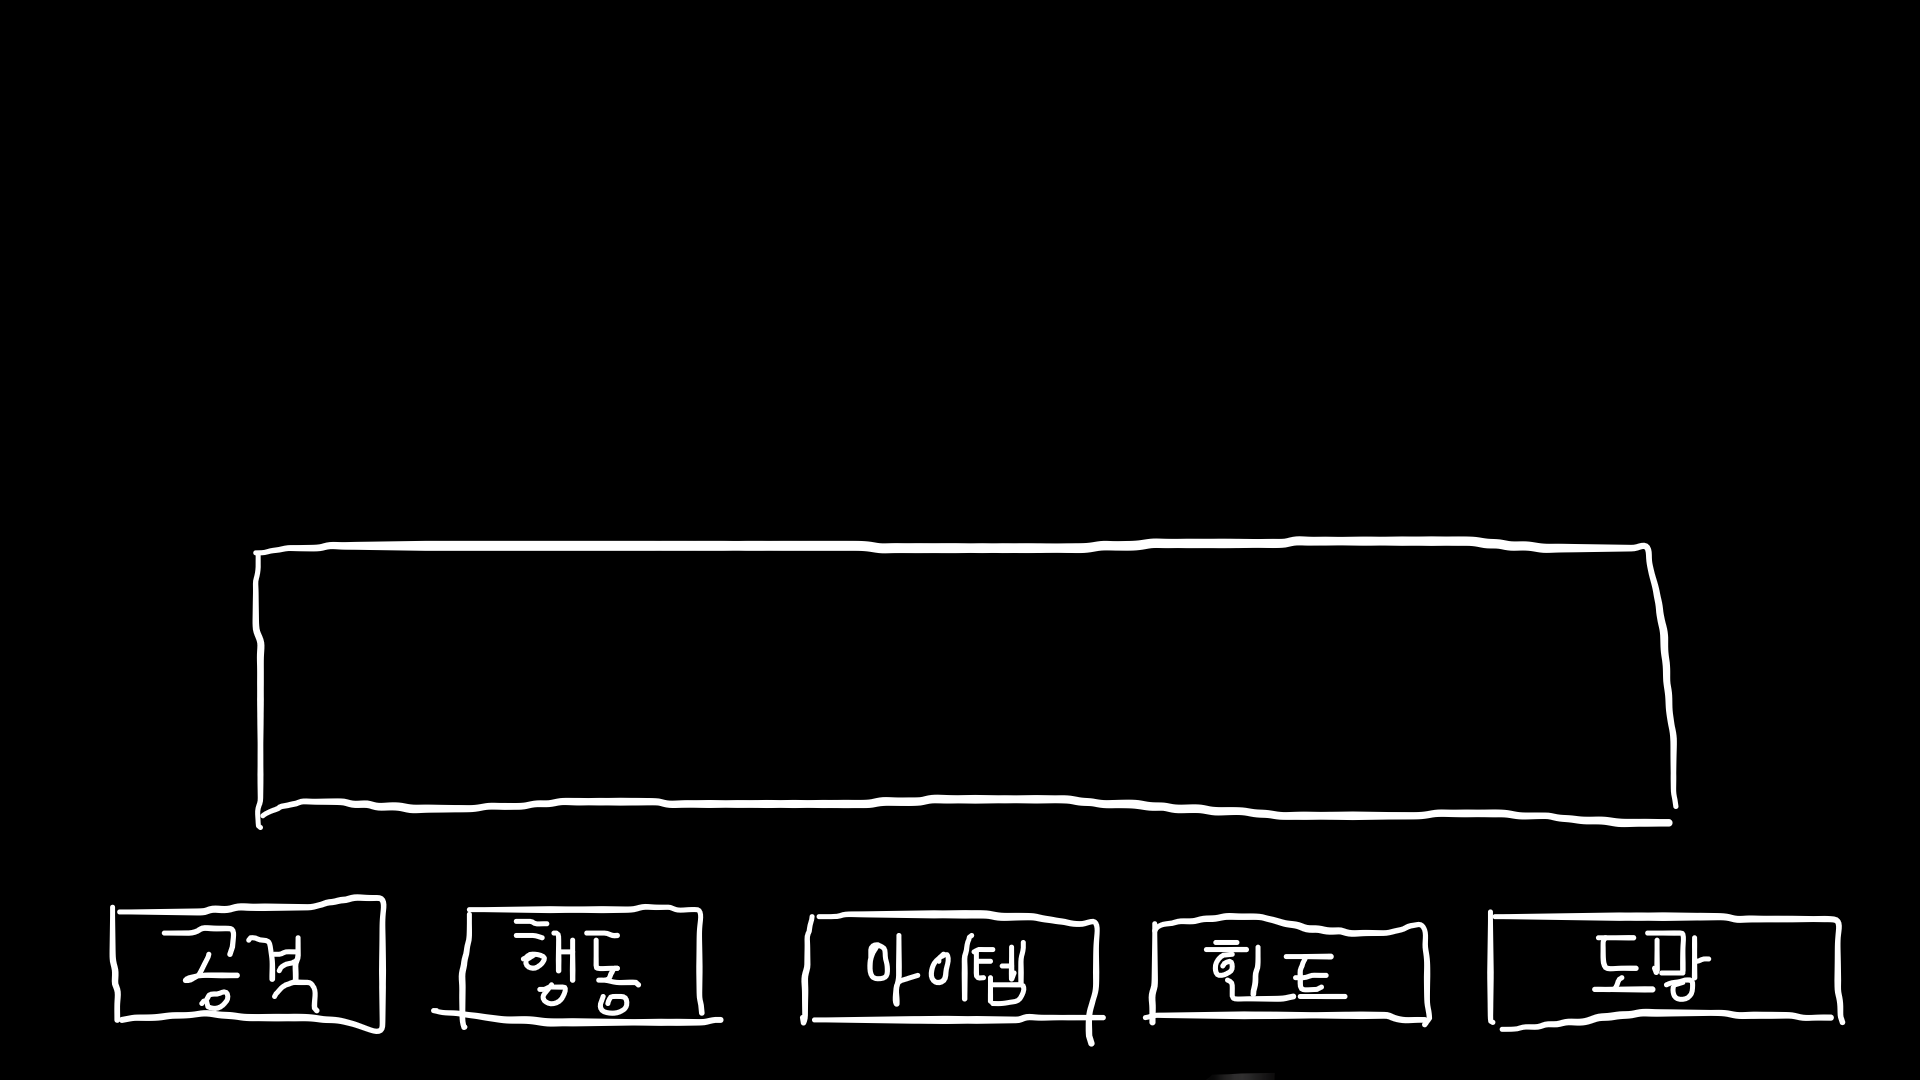 공격 행동 아이템 힌트 도망